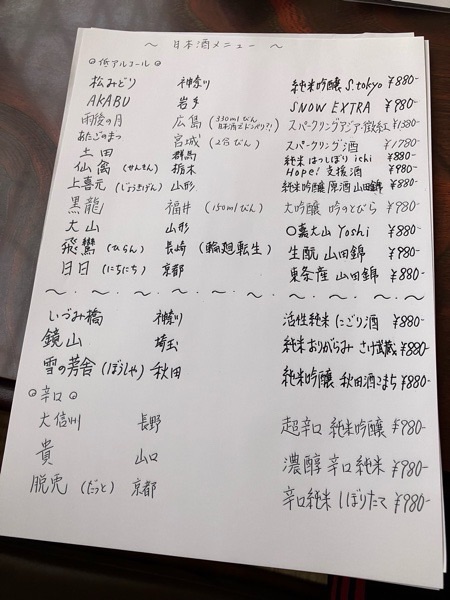 ～ 日本酒メニュー ～
◎低アルコール◎
松みどり 神奈川 純米吟醸 S.tokyo ¥880-
AKABU 岩手 SNOW EXTRA ¥980-
雨後の月 広島 (330mlびん 日本酒でドンペリ?!) スパークリングアジア・微紅 ¥1380-
あたごのまつ 宮城 (2合びん) スパークリング酒 ¥1780-
土田 群馬 純米 はつしぼり ichi ¥880-
仙禽 (せんきん) 栃木 Hope! 支援酒 ¥980-
上喜元 (じょうきげん) 山形 純米吟醸 原酒 山田錦 ¥880-
黒龍 福井 (150mlびん) 大吟醸 吟のとびら ¥980-
大山 山形 〇嘉大山 Yoshi ¥880-
飛鸞 (ひらん) 長崎 (輪廻転生) 生酛 山田錦 ¥980-
日日 (にちにち) 京都 東条産 山田錦 ¥880-
～・～・～・～・～・～・～・～・～
いづみ橋 神奈川 活性純米 にごり酒 ¥880-
鏡山 埼玉 純米 おりがらみ さけ武蔵 ¥880-
雪の茅舎 (ぼうしゃ) 秋田 純米吟醸 秋田酒こまち ¥880-
◎辛口◎
大信州 長野 超辛口 純米吟醸 ¥980-
貴 山口 濃醇 辛口 純米 ¥980-
脱兎 (だっと) 京都 辛口純米 しぼりたて ¥980-